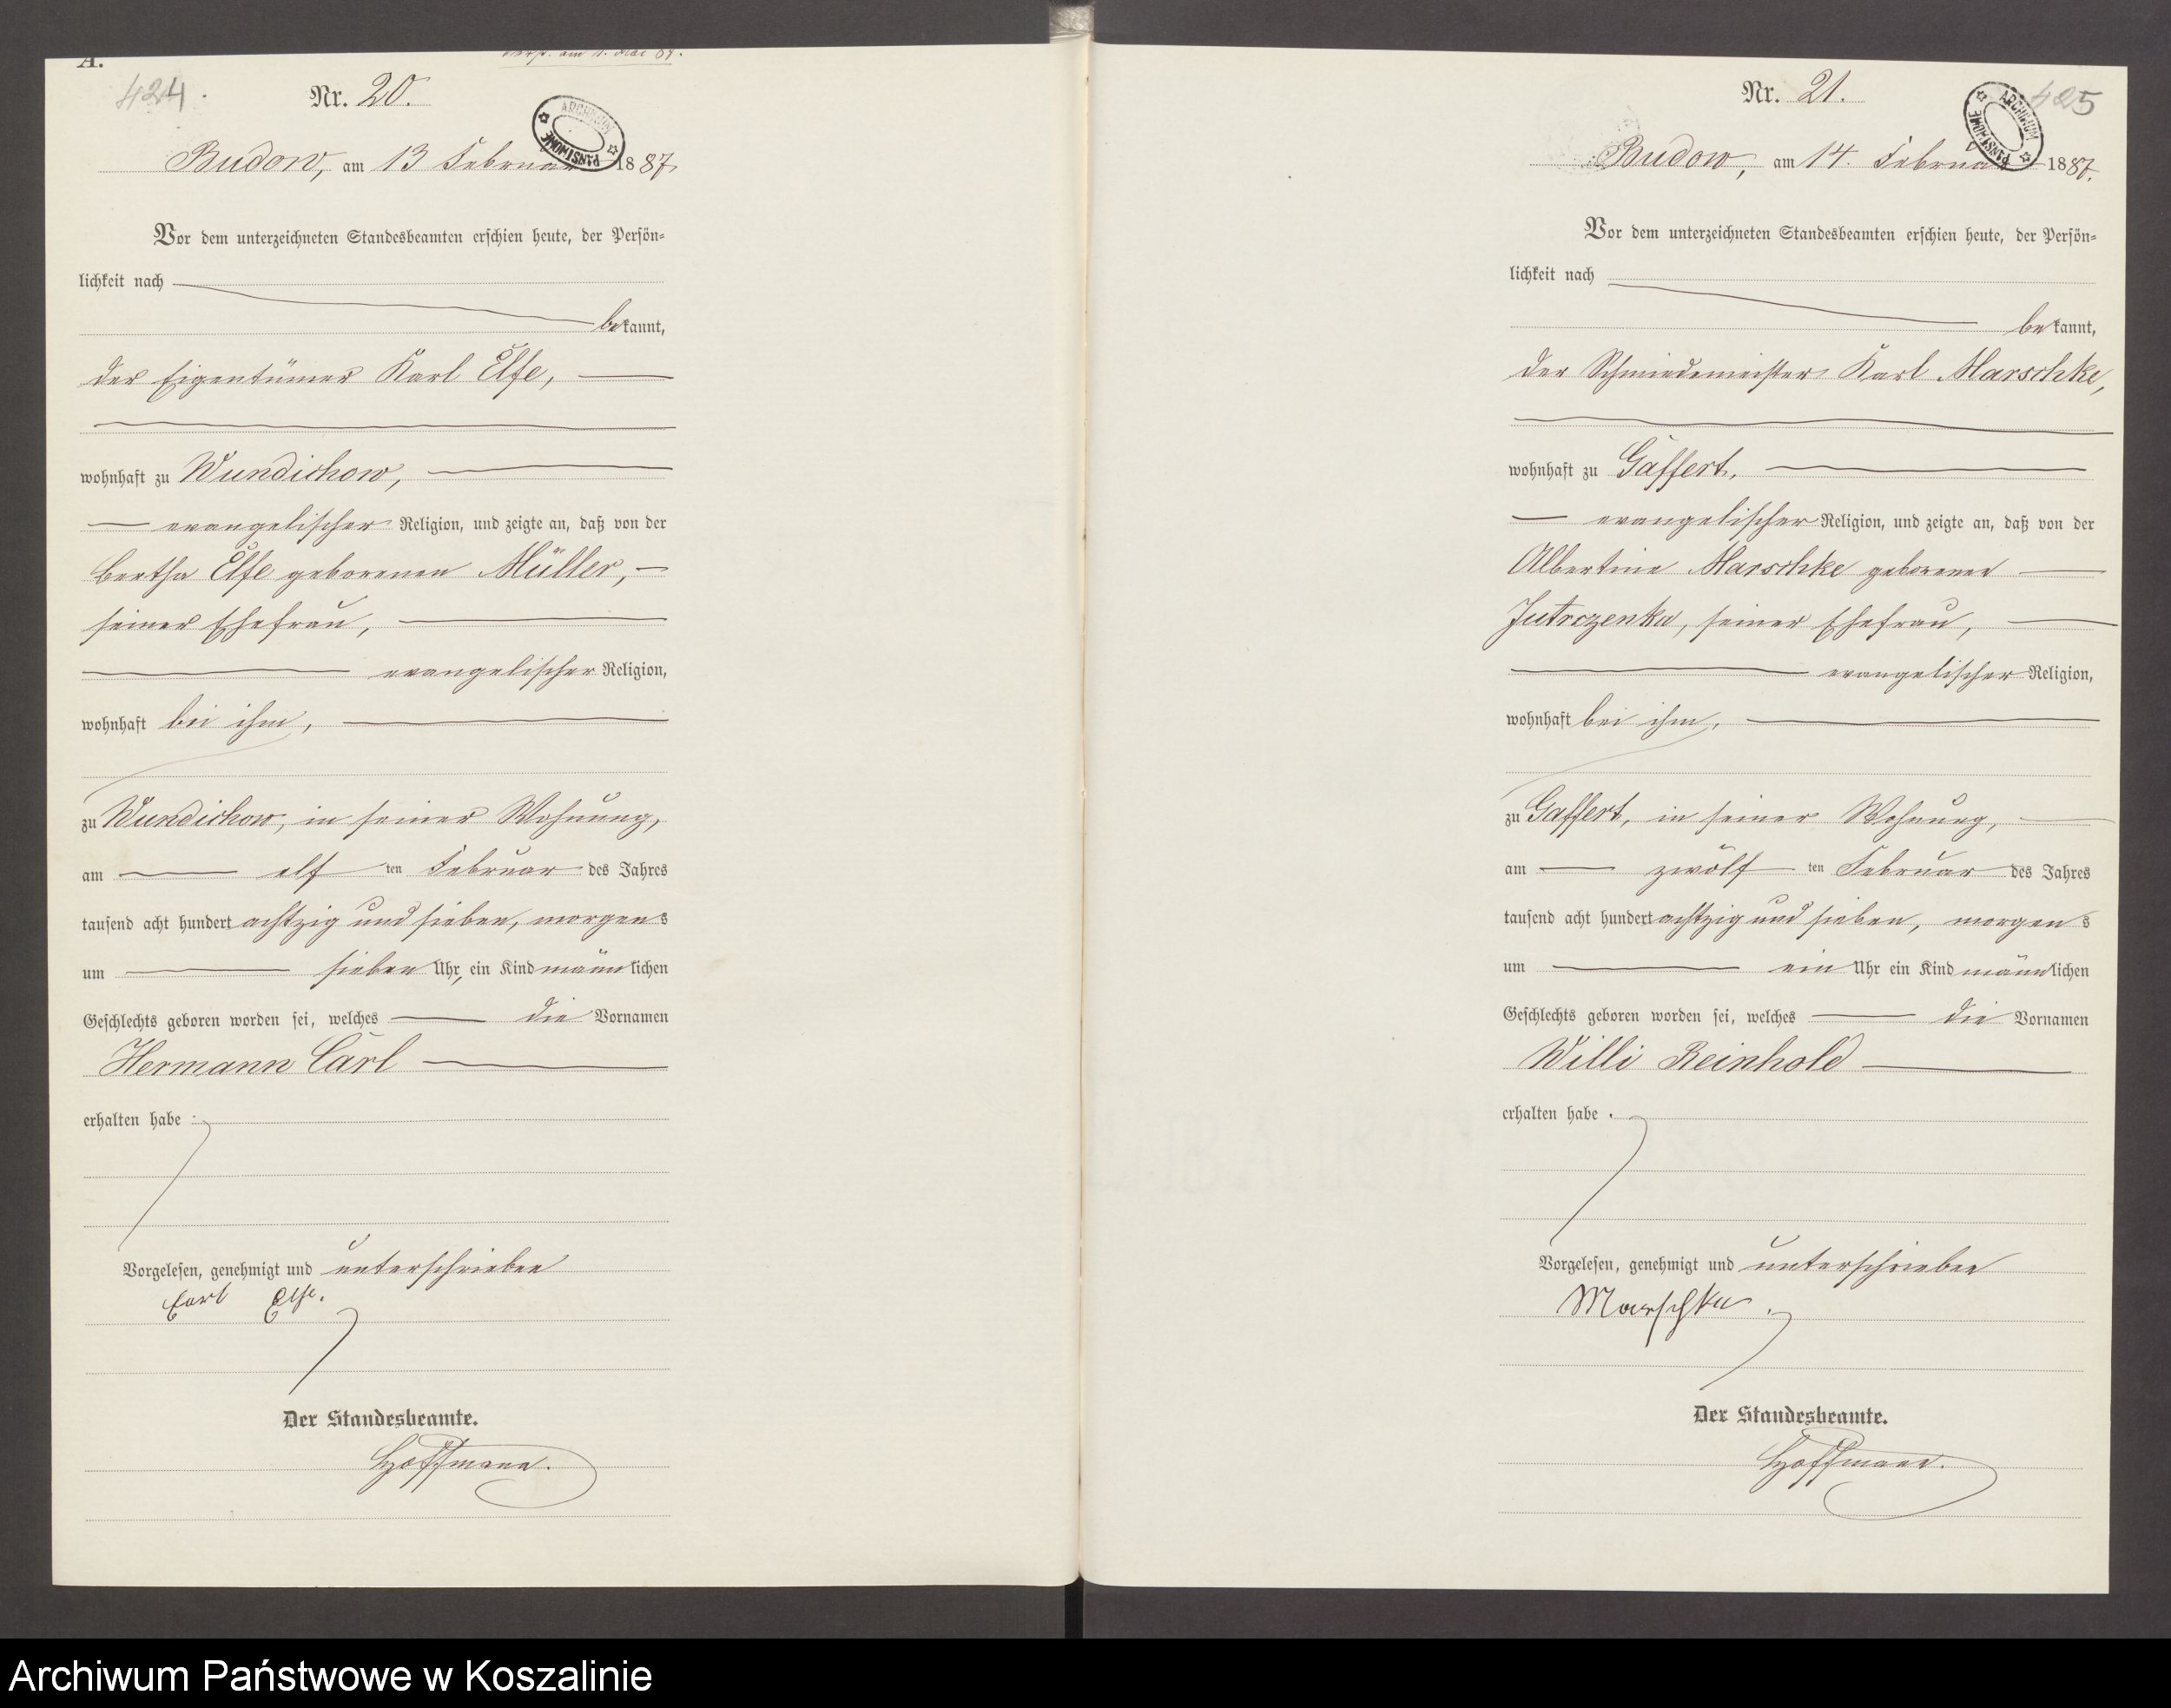 A.
424.
Nr. 20.
Budow, am 13 Februar 1887,
Vor dem unterzeichneten Standesbeamten erschien heute, der Persön-
lichkeit nach
bekannt,
der Eigentümer Karl Elfe,
wohnhaft zu Wundichow,
evangelischer Religion, und zeigte an, daß von der
Bertha Elfe geborenen Müller,
seiner Ehefrau,
evangelischer Religion,
wohnhaft bei ihm,
zu Wundichow, in seiner Wohnung,
am elf ten Februar des Jahres
tausend acht hundert achtzig und sieben, morgens
um sieben Uhr, ein Kind männlichen
Geschlechts geboren worden sei, welches die Vornamen
Hermann Carl
erhalten habe.
Vorgelesen, genehmigt und unterschrieben
Carl Elfe.
Der Standesbeamte.
Hoffmann.
ARCHIWUM PAŃSTWOWE
Nr. 21.
425
Budow, am 14. Februar 1887.
Vor dem unterzeichneten Standesbeamten erschien heute, der Persön-
lichkeit nach
bekannt,
der Schmiedemeister Karl Marschke,
wohnhaft zu Gaffert,
evangelischer Religion, und zeigte an, daß von der
Albertine Marschke geborenen
Jutrczenka, seiner Ehefrau,
evangelischer Religion,
wohnhaft bei ihm,
zu Gaffert, in seiner Wohnung,
am zwölf ten Februar des Jahres
tausend acht hundert achtzig und sieben, morgens
um ein Uhr ein Kind männlichen
Geschlechts geboren worden sei, welches die Vornamen
Willi Reinhold
erhalten habe.
Vorgelesen, genehmigt und unterschrieben
Marschke.
Der Standesbeamte.
Hoffmann.
ARCHIWUM PAŃSTWOWE
Archiwum Państwowe w Koszalinie